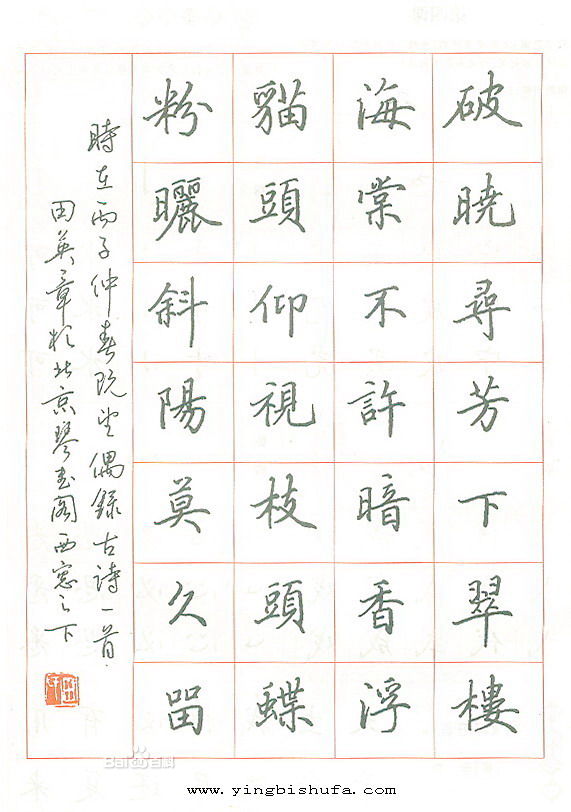 破曉尋芳下翠樓
海棠不許暗香浮
貓頭仰視枝頭蝶
粉曬斜陽莫久畱
時在丙子仲春既望偶錄古詩一首
田英章於北京琴書閣西窓之下
Bai百科
www.yingbishufa.com